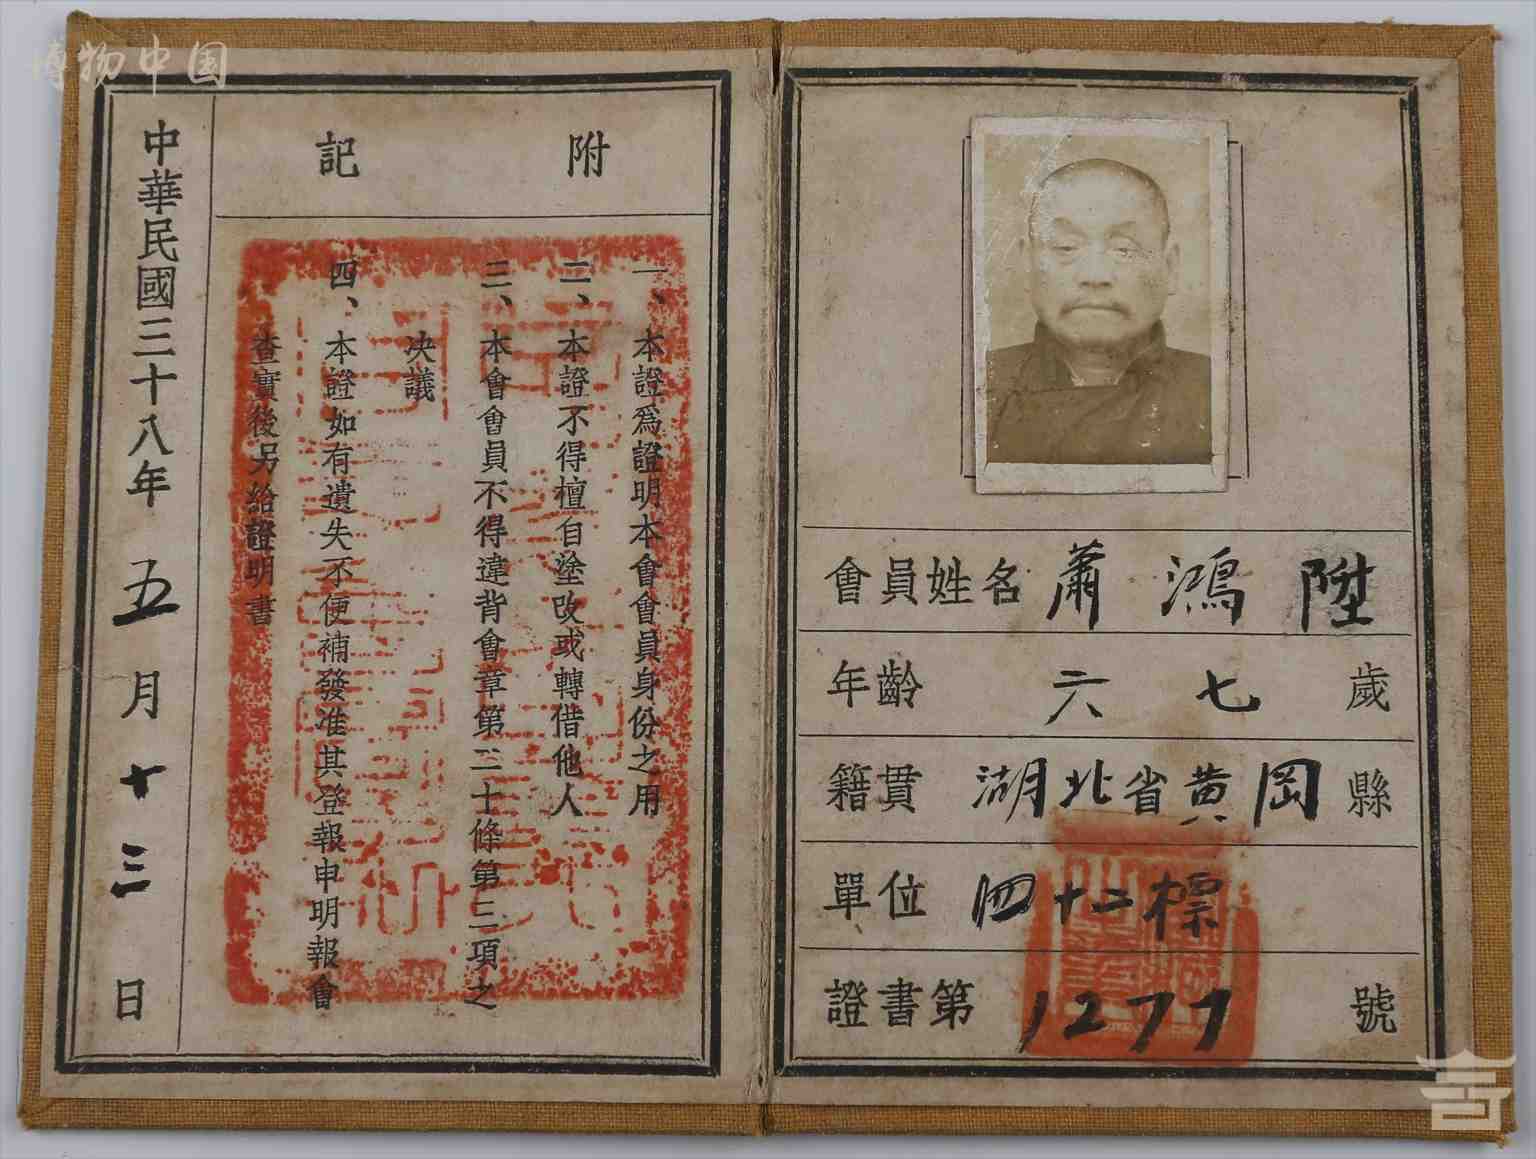 博物中国
會員姓名 蕭鴻陞
年齡 六七 歲
籍貫 湖北省黄岡 縣
單位 四十二標
證書第 1277 號
附記
一、本證爲證明本會會員身份之用
二、本證不得檀自塗改或轉借他人
三、本會會員不得違背會章第二十條第三項之
決議
四、本證如有遺失不便補發准其登報申明報會
查實後另給證明書
中華民國三十八年五月十三日